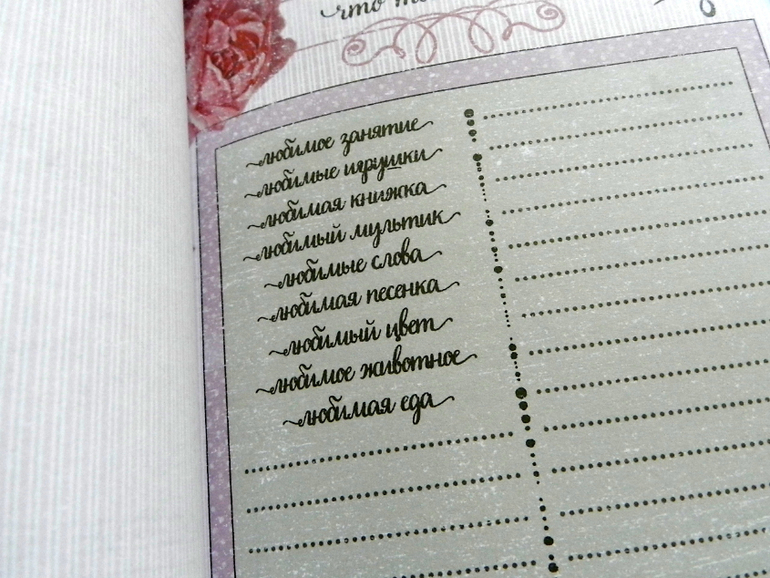 что
любимое занятие
любимые игрушки
любимая книжка
любимый мультик
любимые слова
любимая песенка
любимый цвет
любимое животное
любимая еда